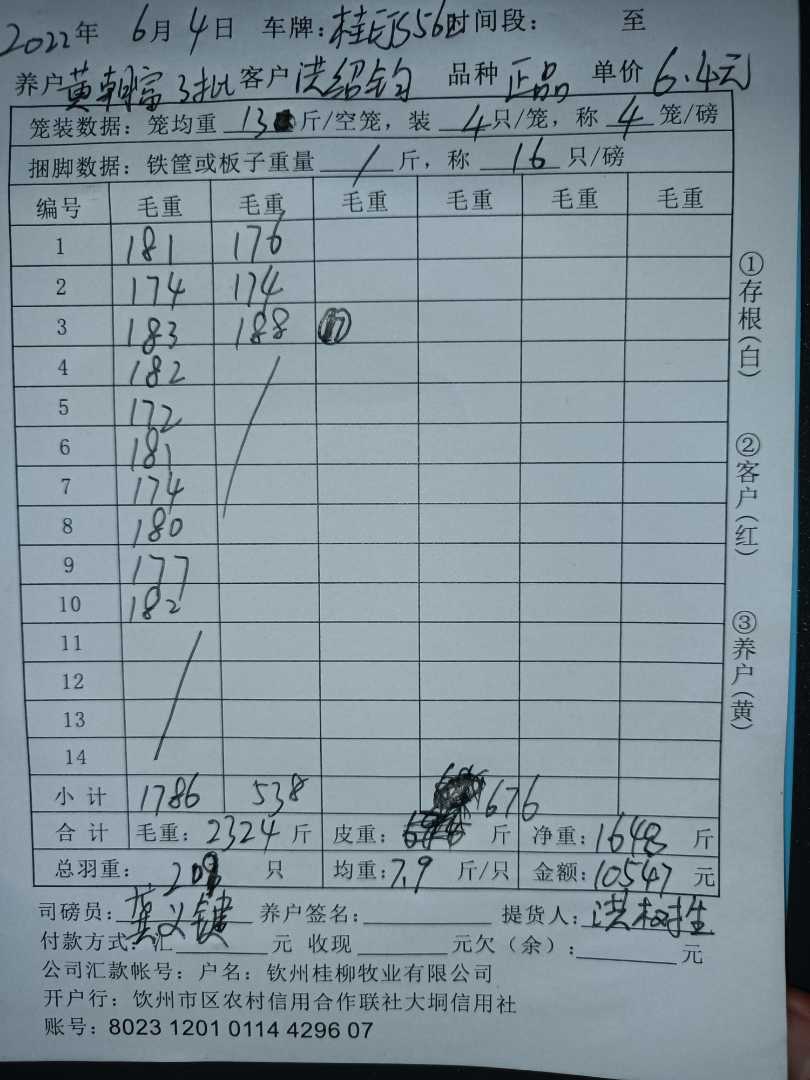 2022年 6月 4日 车牌: 时间段: 至
养户 黄朝富 3批 客户 洪绍钧 品种 正品 单价 6.4元
笼装数据: 笼均重 13 斤/空笼, 装 4 只/笼, 称 4 笼/磅
捆脚数据: 铁筐或板子重量 / 斤, 称 16 只/磅
编号 毛重 毛重 毛重 毛重 毛重 毛重
1 181 176
2 174 174
3 183 188
4 182
5 172
6 181
7 174
8 180
9 177
10 182
11
12
13
14
小计 1786 538 676
合计 毛重: 2324 斤 皮重: 斤 净重: 1648 斤
总羽重: 208 只 均重: 7.9 斤/只 金额: 10547 元
司磅员: 养户签名: 提货人:
付款方式: 汇 元 收现 元欠(余): 元
公司汇款帐号: 户名: 钦州桂柳牧业有限公司
开户行: 钦州市区农村信用合作联社大垌信用社
账号: 8023 1201 0114 4296 07
①存根(白)
②客户(红)
③养户(黄)